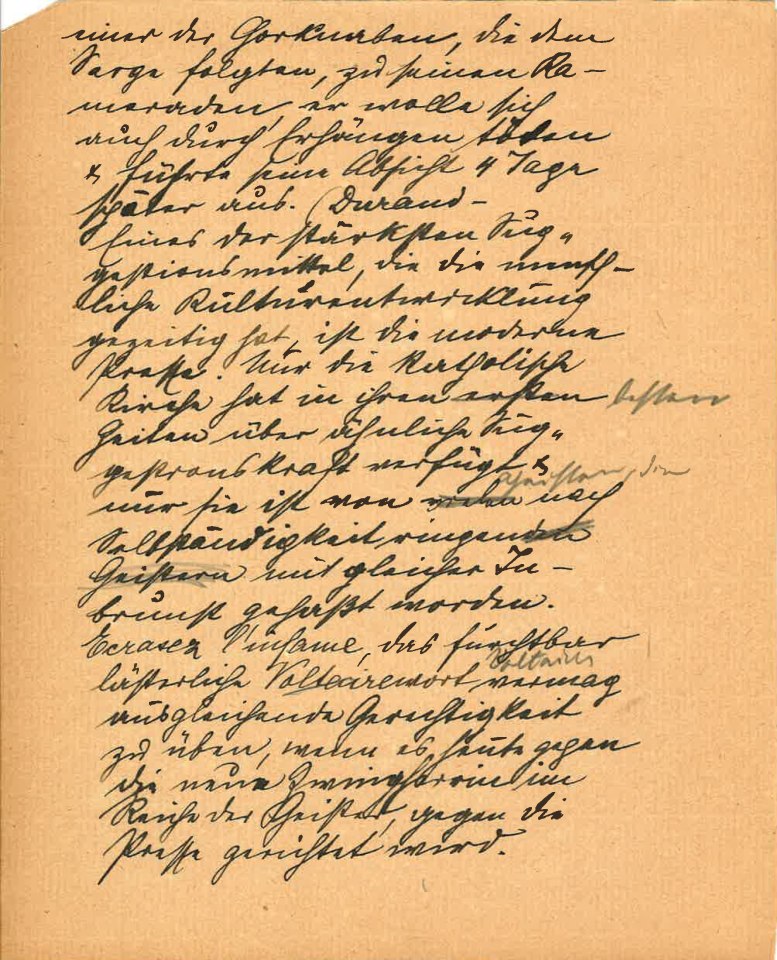 einer der Chorknaben, die dem
Sarge folgten, zu seinen Ka-
meraden, er wolle sich
auch durch Erhängen töten
& führte seine Absicht 4 Tage
später aus. (Durand-
Eines der stärksten Sug-
gestionsmittel, die die mensch-
liche Kulturentwicklung
gezeitigt hat, ist die moderne
Presse. Nur die katholische
Kirche hat in ihren ersten besten
Zeiten über ähnliche Sug-
gestionskraft verfügt &
Geistern, die
nur sie ist von vielen nach
Selbständigkeit ringenden
Geistern mit gleicher In-
brunst gehaßt worden.
Ecrasez l'infame, das furchtbar
Voltaires
lästerliche Voltairewort vermag
ausgleichende Gerechtigkeit
zu üben, wenn es heute gegen
die neue Zwingherrin im
Reiche der Geister, gegen die
Presse gerichtet wird.